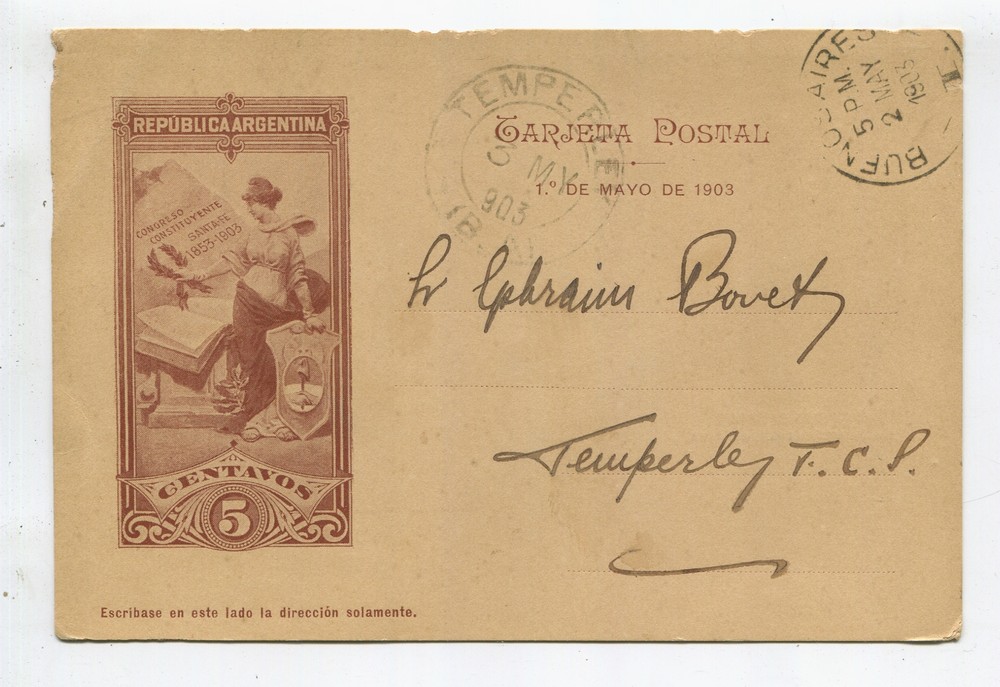 REPÚBLICA ARGENTINA
CONGRESO
CONSTITUYENTE
SANTA-FÉ
1853-1903
CENTAVOS
5
TARJETA POSTAL
1.º DE MAYO DE 1903
TEMPERLEY
MY
903
BUENOS AIRES
5 P.M.
2 MAY
1903
Sr Ephraim Bovet
Temperley F. C. S.
Escribase en este lado la dirección solamente.